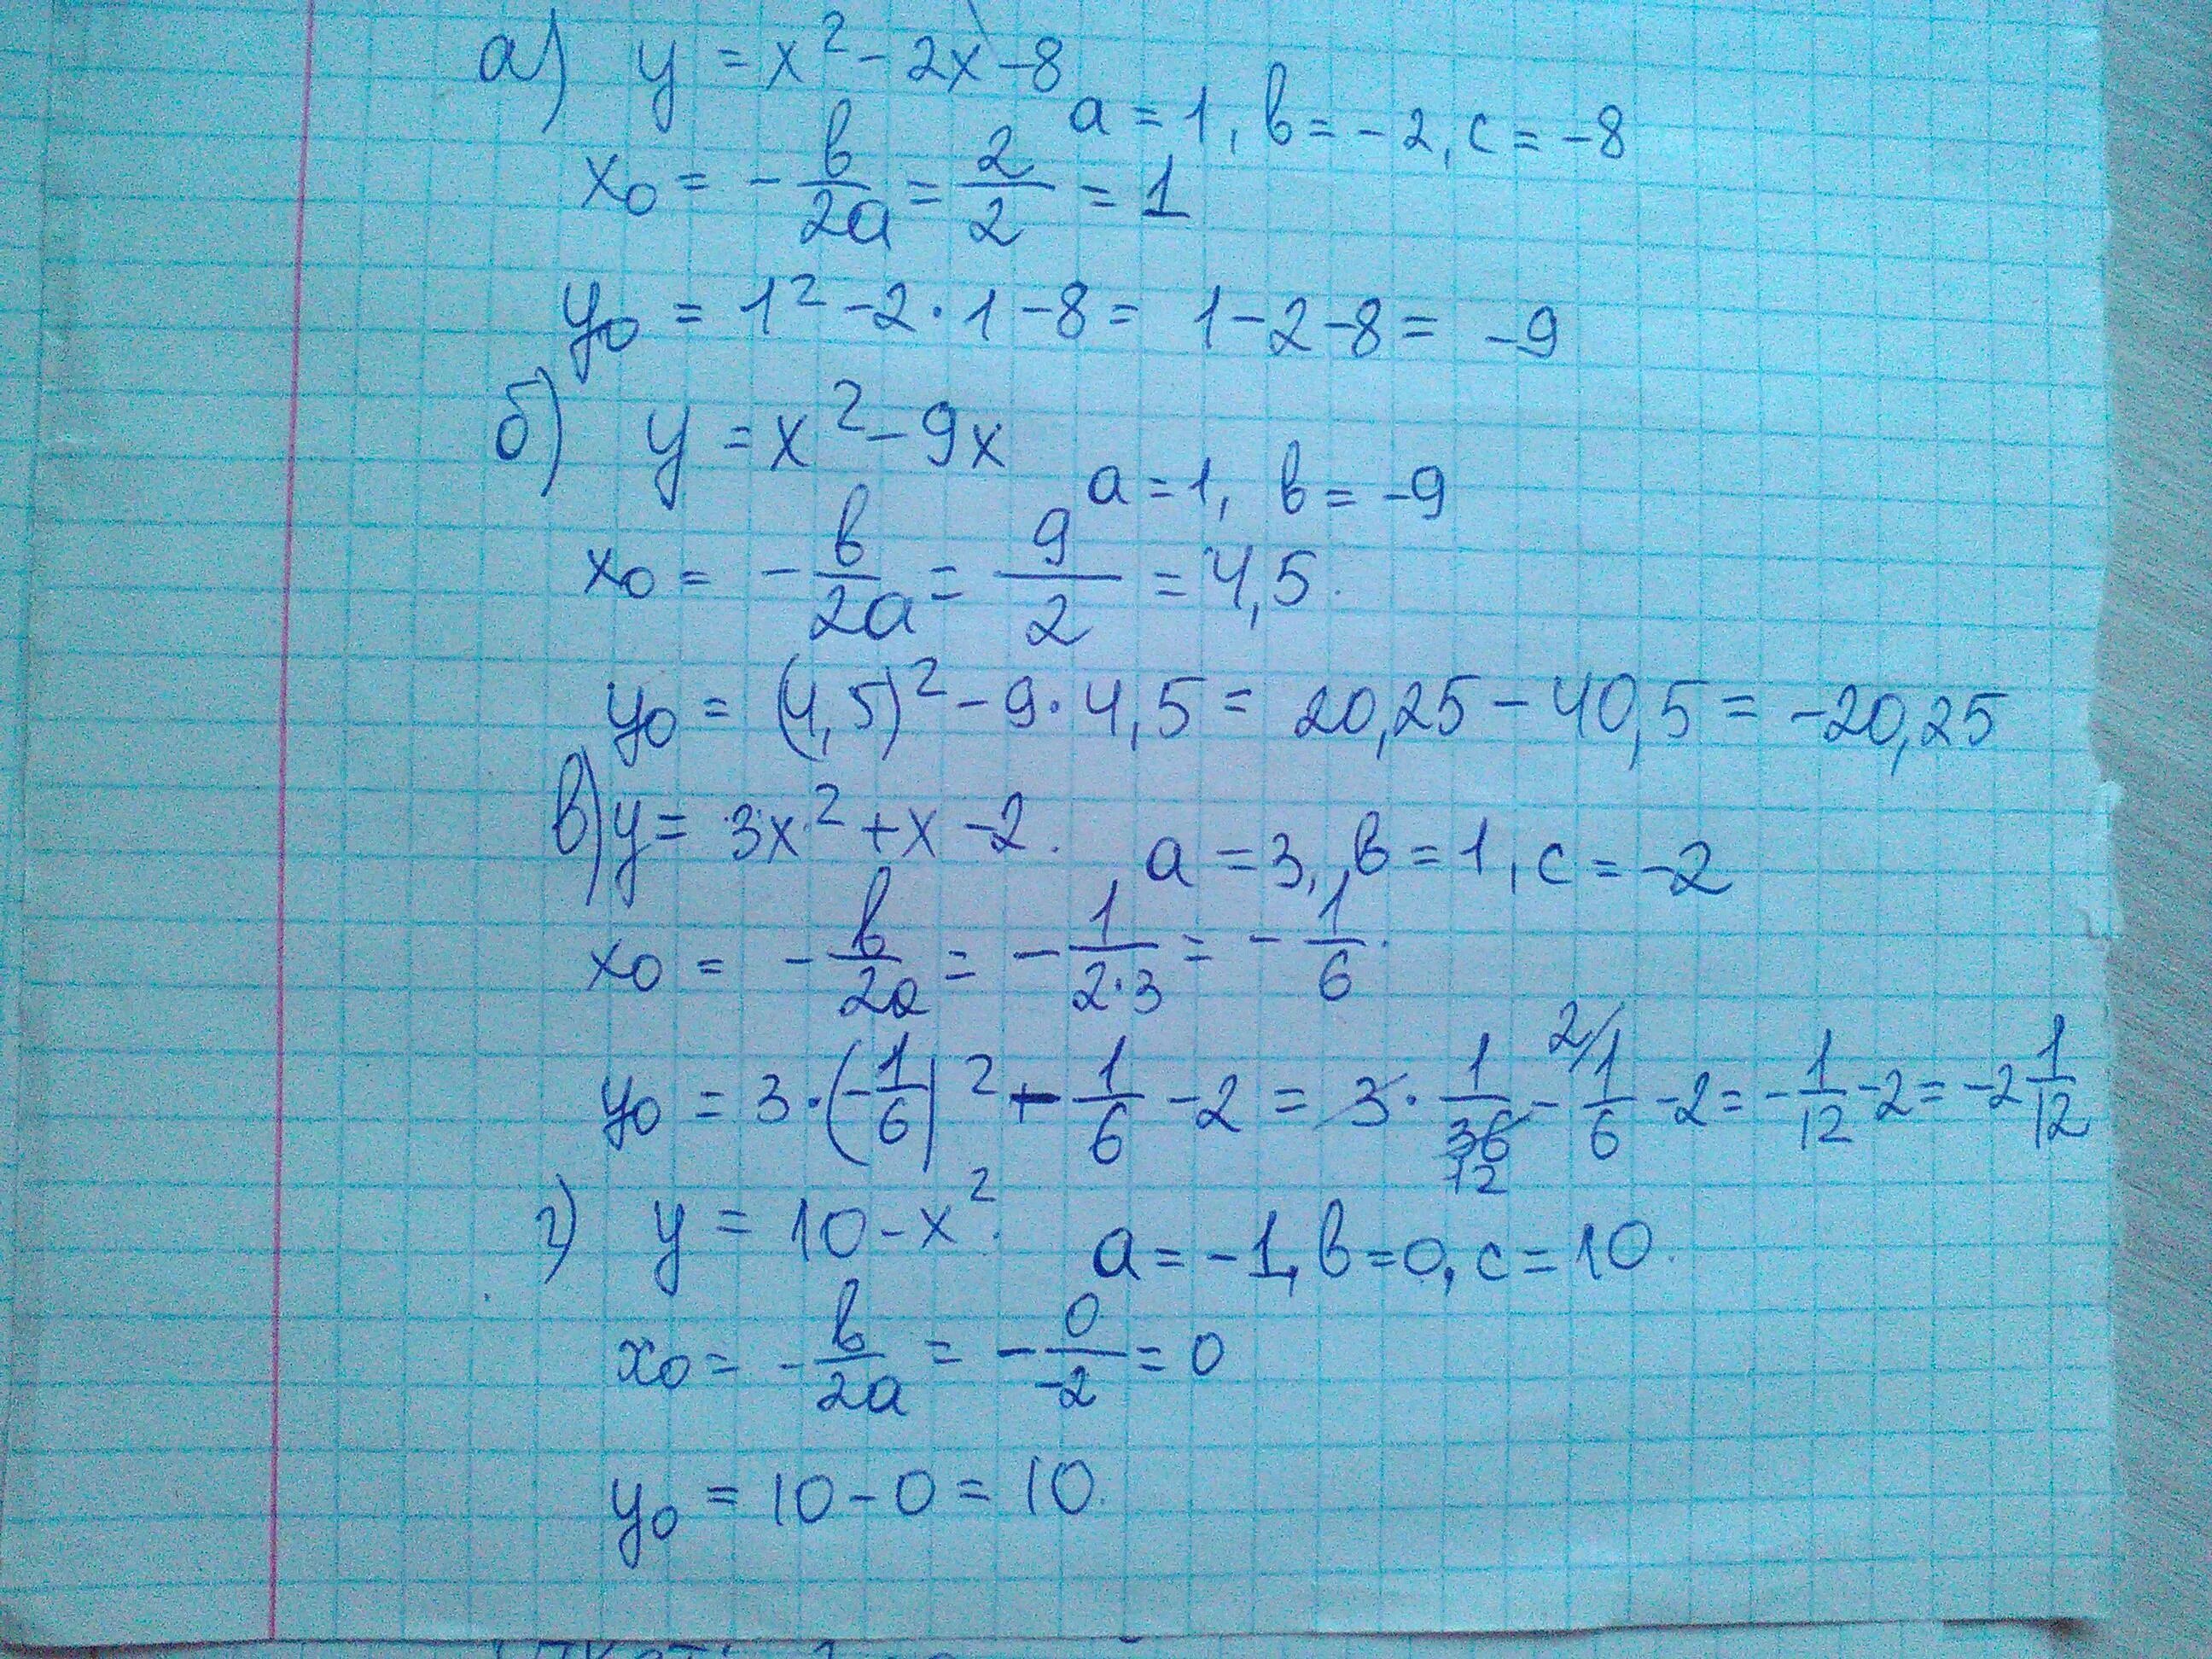 а) y = x² - 2x - 8
a = 1, в = -2, c = -8
x₀ = - в/2a = 2/2 = 1
y₀ = 1² - 2·1 - 8 = 1 - 2 - 8 = -9
б) y = x² - 9x
a = 1, в = -9
x₀ = - в/2a = 9/2 = 4,5.
y₀ = (4,5)² - 9·4,5 = 20,25 - 40,5 = -20,25
в) y = 3x² + x - 2. a = 3, в = 1, c = -2
x₀ = - в/2a = - 1/2·3 = - 1/6.
y₀ = 3·(-1/6)² - 1/6 - 2 = 3· 1/36 - 1/6 - 2 = - 1/12 - 2 = -2 1/12
12 2/
г) y = 10 - x². a = -1, в = 0, c = 10.
x₀ = - в/2a = - 0/-2 = 0
y₀ = 10 - 0 = 10.